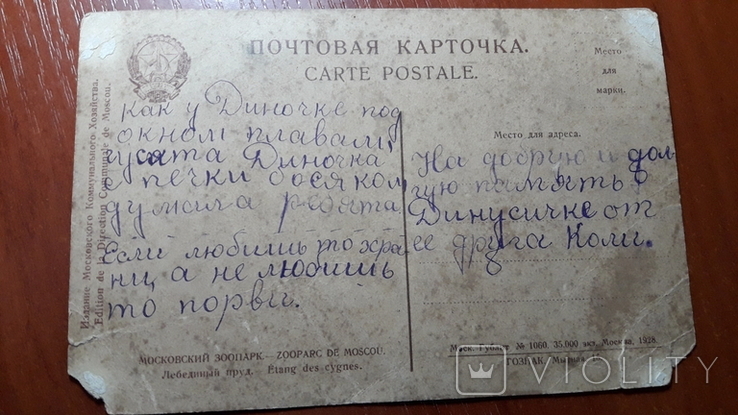 ПОЧТОВАЯ КАРТОЧКА.
CARTE POSTALE.
Место
для
марки.
Издание Московского Коммунального Хозяйства.
Edition de la Direction Communale de Moscou.
как у Диночке под
окном плавали
гусята Диночка
с печки босяком
думала ребята
Если любишь то хра
ни, а не любишь
то порви.
Место для адреса.
На добрую и дол
гую память
Динусичке от
ее друга Коли.
МОСКОВСКИЙ ЗООПАРК.—ZOOPARC DE MOSCOU.
Лебединый пруд. Étang des cygnes.
Моск. Гублит № 1060. 35.000 экз. Москва, 1928.
ГОЗНАК.
VIOLITY